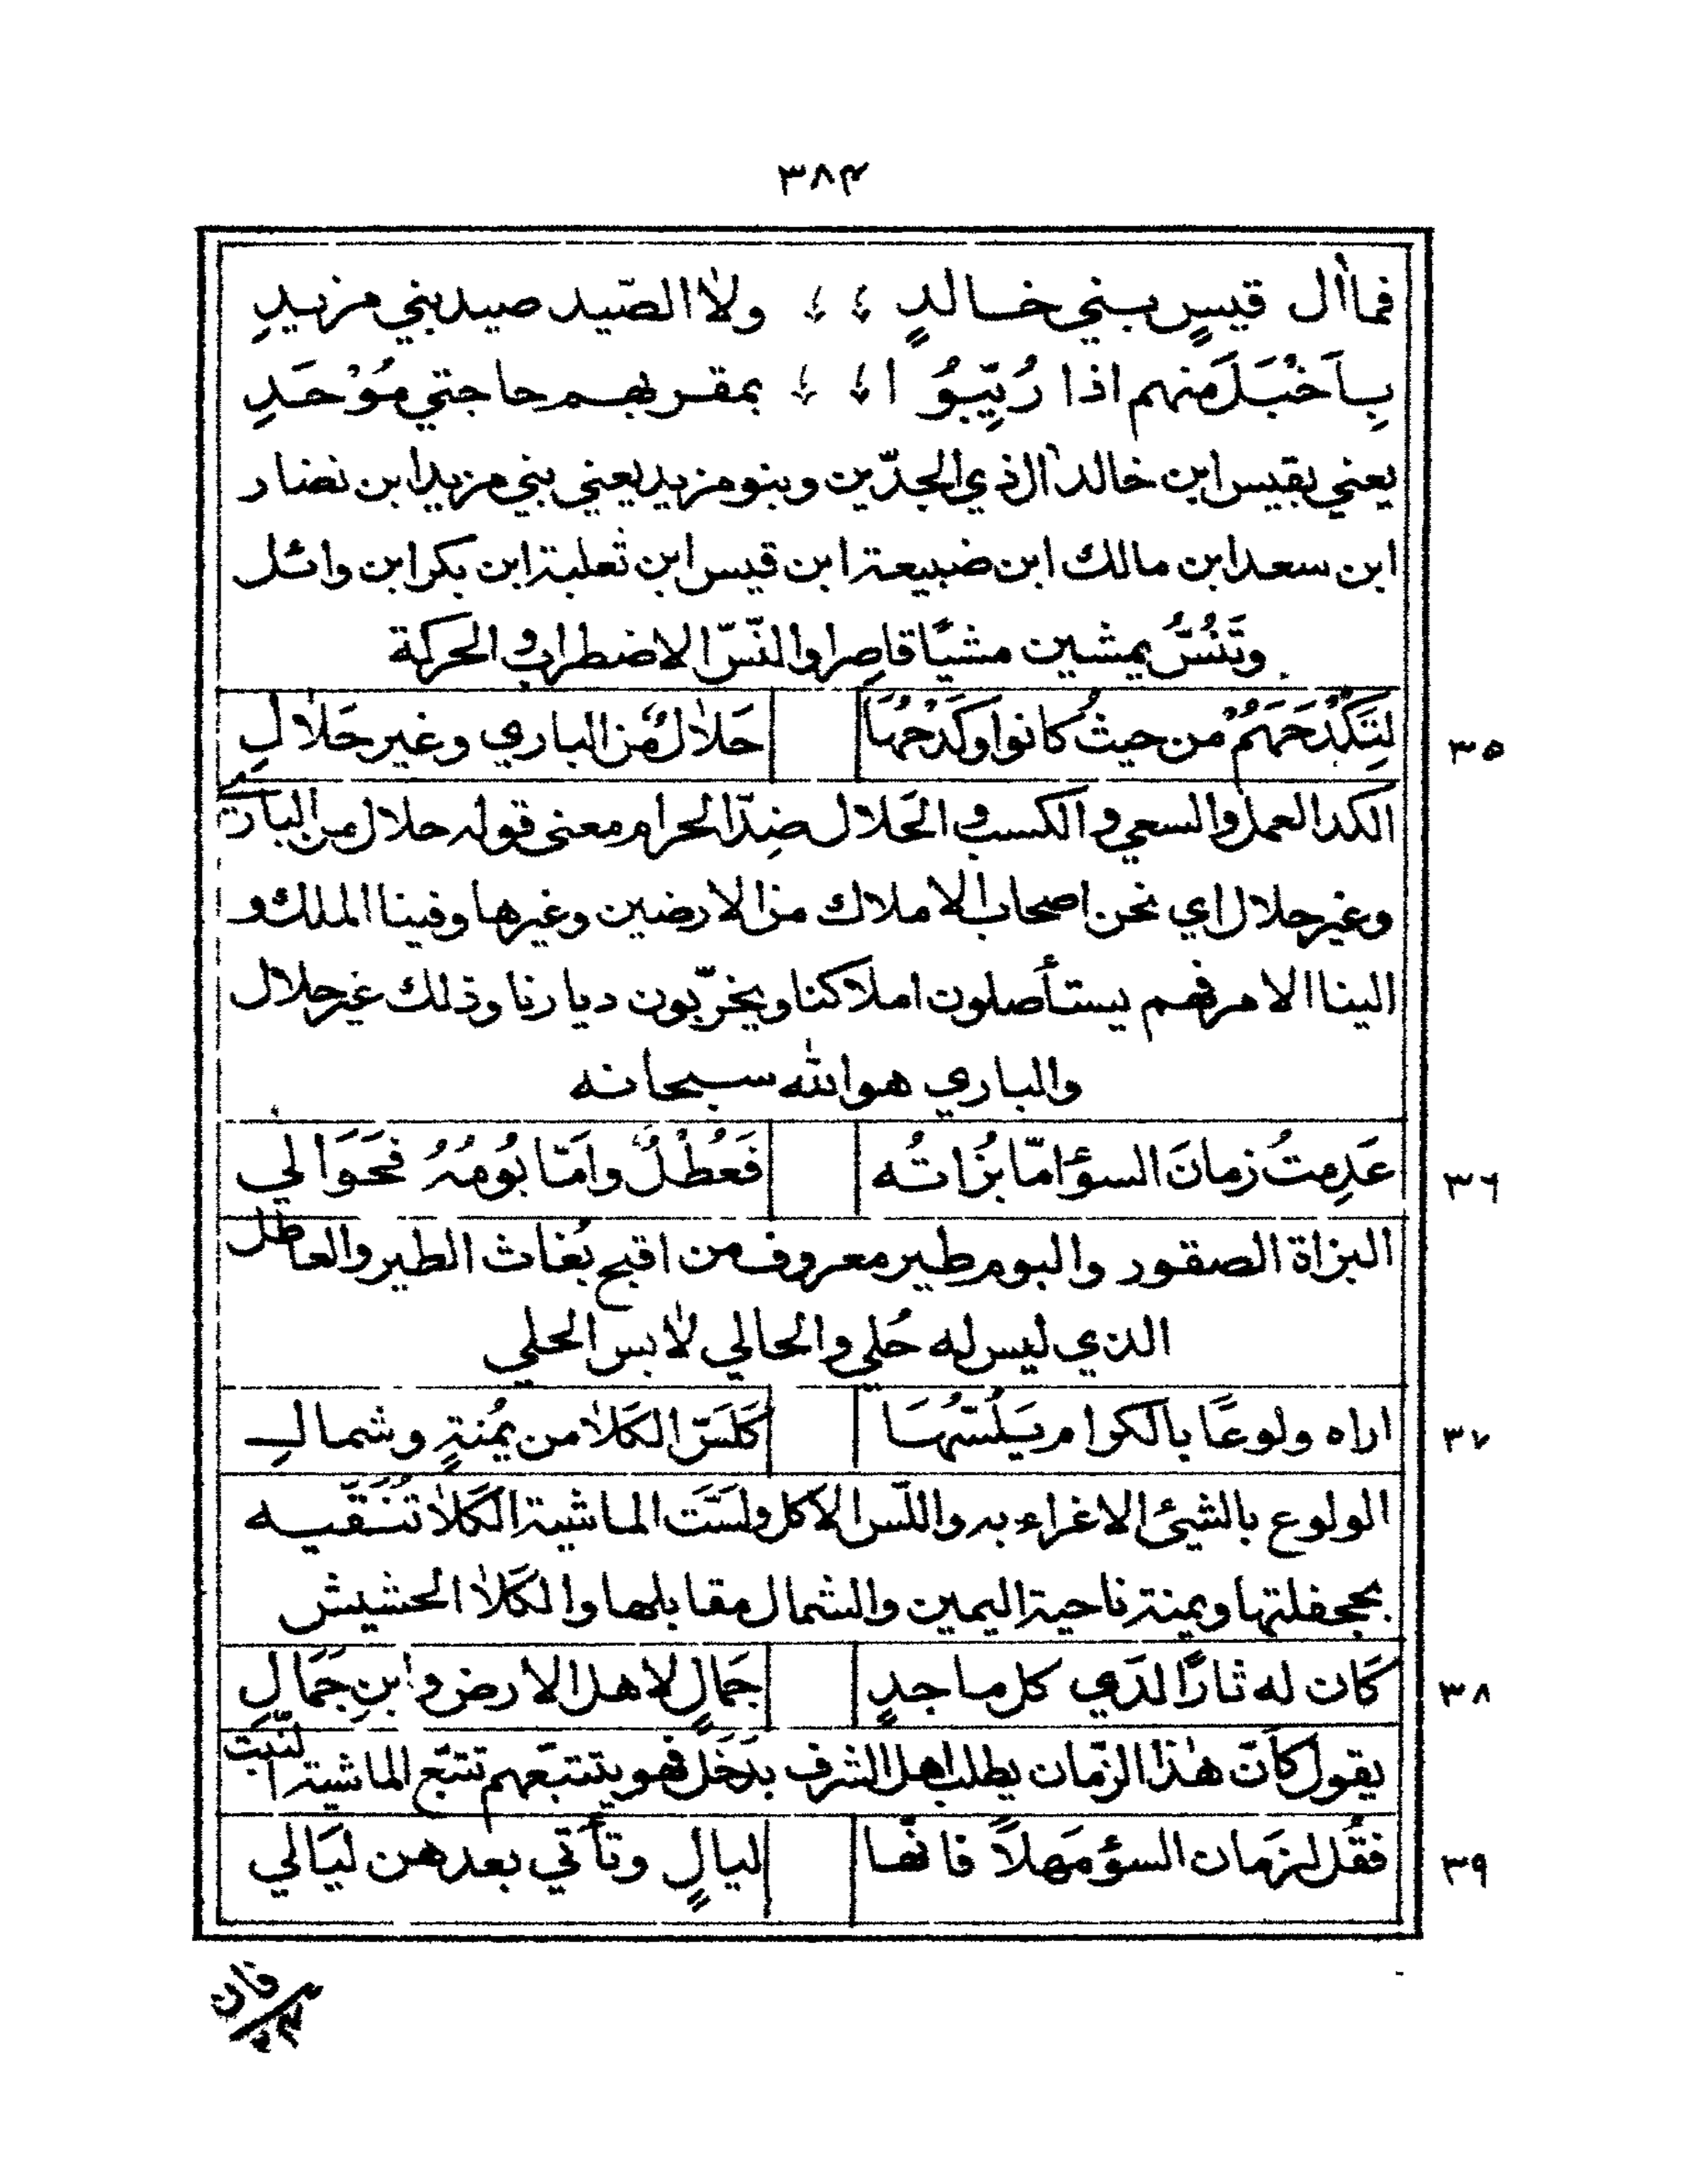 ٣٨٤
فما أال قيسٍ بني خالدٍ ولا الصّيد صيد بني مزيدِ
بِاَخْبَلَ منهم اذا رُتِّبُوا بمقربهم حاجتي مُوْحَدِ
يعني بقيس ابن خالد الذي الجدّين وبنو مزيد يعني بني مزيد ابن نضار
ابن سعد ابن مالك ابن ضبيعة ابن قيس ابن ثعلبة ابن بكر ابن وائل
وتَنُسُّ يمشين مشيًا قاصرا والنّسّ الاضطراب و الحركة
لِتَكْدَحَهُمْ من حيثُ كانوا وكَدْحُهَا حَلالٌ من الباري وغير حَلالِ
٣٥
الكد العمل والسعي و الكسب و الحَلال ضِدّ الحرام ومعنى قوله حلال من البارئ
وغير حلال اي نحن اصحاب الاملاك من الارضين وغيرها وفينا الملك و
الينا الامر فهم يستأصلون املاكنا ويخرّبون ديارنا وذلك غير حلال
والباري هو الله سبحانه
عَدِمتُ زمانَ السؤ امّا بُزَاتُه فَعُطْلٌ وامّا بُومُهُ فَحَوَالي
٣٦
البزاة الصقور والبوم طير معروف من اقبح بُغاث الطير والعاطل
الذي ليس له حُلي والحالي لابس الحلي
اراه ولوعًا بالكرام يَلُسّهَا كَلَسّ الكَلا من يُمْنةٍ وشمالِ
٣٧
الولوع بالشيئ الاغراء به واللّسّ الأكل ولسّت الماشية الكَلأ تَنَقّيه
بجحفلتها ويمنة ناحية اليمين والشمال مقابلها والكَلأ الحشيش
كَان له ثارًا لدَي كل ماجدٍ جَمالٍ لاهل الارض وابنِ جَمَالِ
٣٨
يقول كأنّ هذا الزّمان يطلب اهل الشرف بذَحَل فهو يتتبّعهم تتبّع الماشية النّبت
فقُل لزمان السؤ مَهلاً فانّها ليالٍ وتأتي بعدهن ليَالي
٣٩
فان